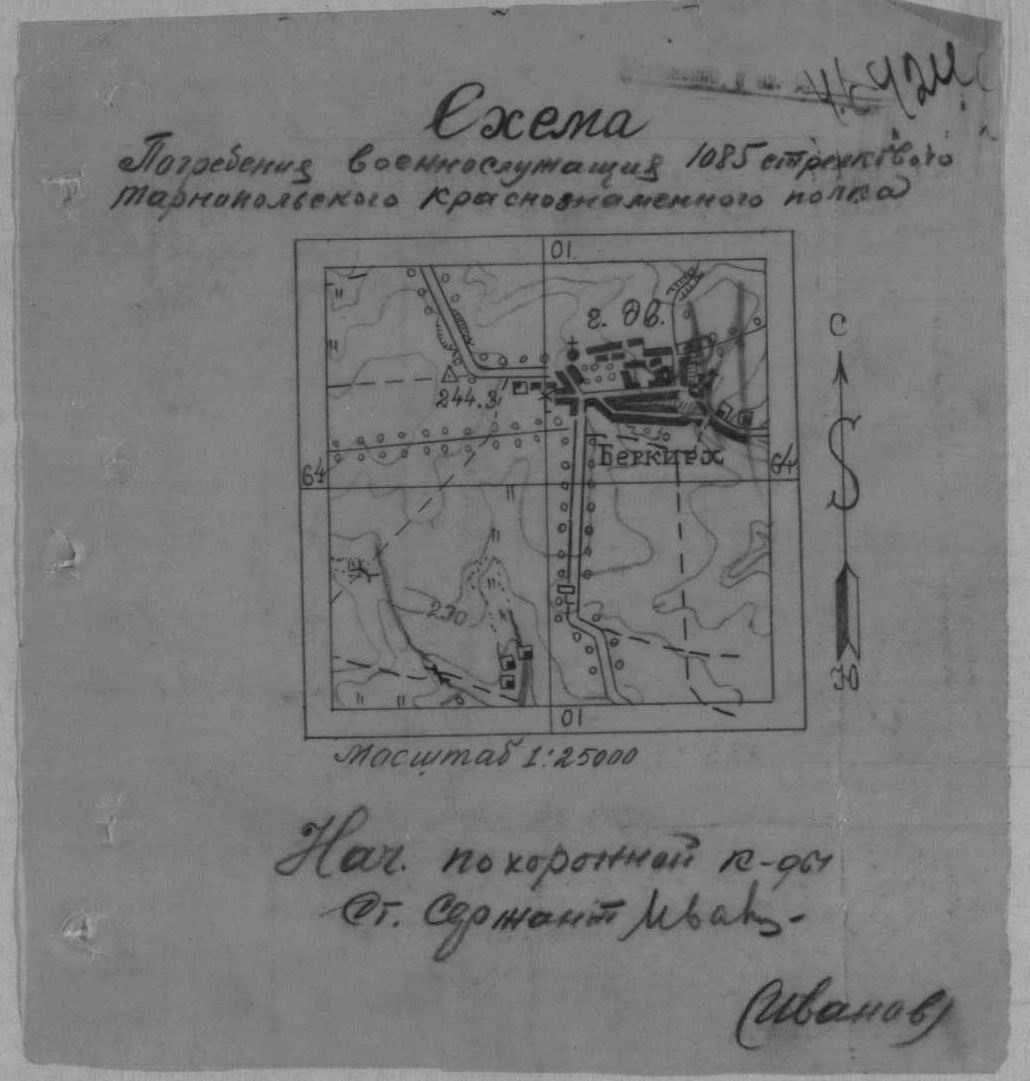 Схема
Погребения военнослужащих 1085 стрелкового
Тарнопольского Краснознаменного полка
01
г. дв.
С
244.3
Бегкирх
64
64
230
Ю
01
Масштаб 1:25000
Нач. похоронной к-ды
Ст. Сержант
(Иванов)